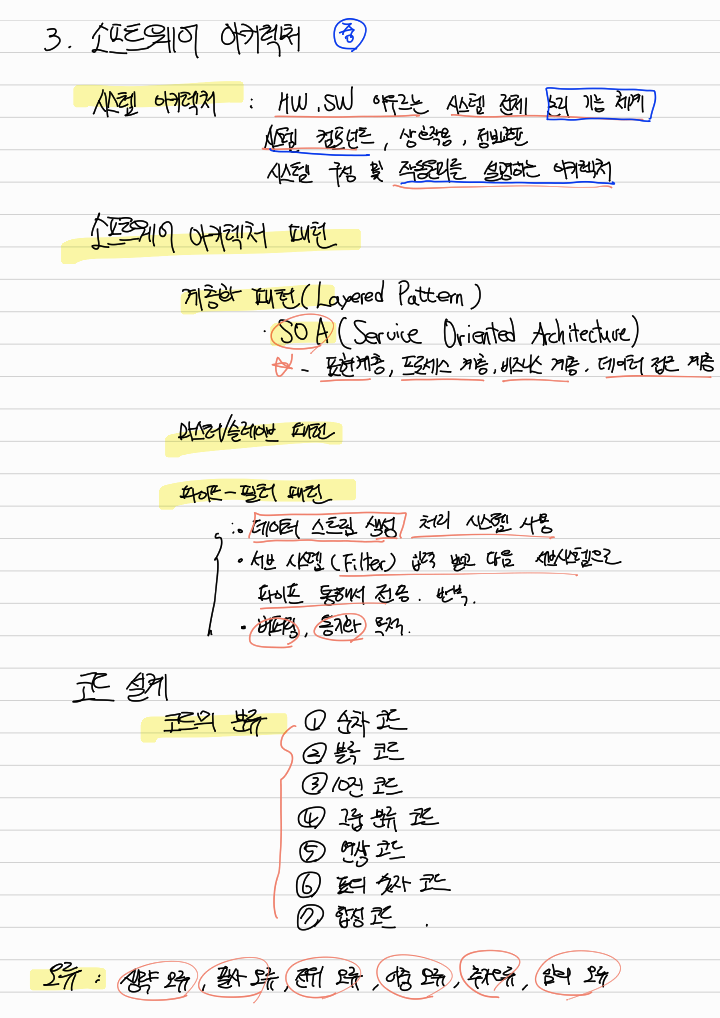 3. 소프트웨어 아키텍처 중
시스템 아키텍처 : HW, SW 아우르는 시스템 전체 논리 기능 체계
시스템 컴포넌트, 상호작용, 정보교환
시스템 구성 및 작동원리를 설명하는 아키텍처
소프트웨어 아키텍처 패턴
계층화 패턴(Layered Pattern)
· SOA (Service Oriented Architecture)
☆ - 표현계층, 프로세스 계층, 비즈니스 계층, 데이터 접근 계층
마스터/슬레이브 패턴
파이프-필터 패턴
: • 데이터 스트림 생성 처리 시스템 사용
• 서브 시스템(Filter) 입력 받고 다음 서브시스템으로
파이프 통해서 전송. 반복.
• 버퍼링, 동기화 목적.
코드 설계
코드의 분류 ① 순차 코드
② 블록 코드
③ 10진 코드
④ 그룹 분류 코드
⑤ 연상 코드
⑥ 표의 숫자 코드
⑦ 합성 코드.
오류 : 생략 오류, 필사 오류, 전위 오류, 이중 오류, 추가오류, 임의 오류